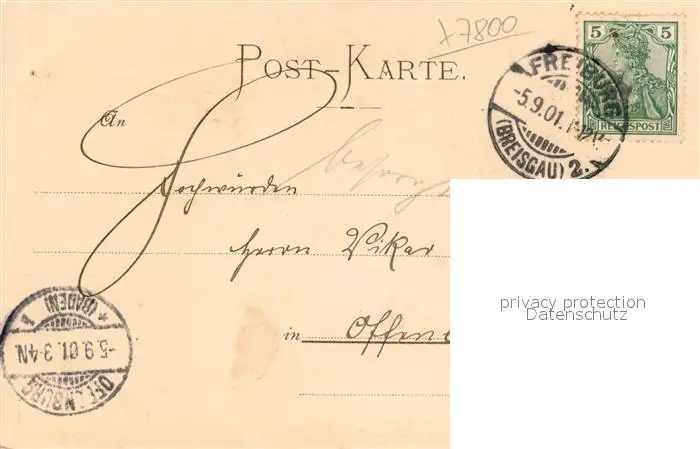 x7800
POST-KARTE.
5 5
REICHSPOST
FREIBURG
-5.9.01.
(BREISGAU) 2.
An
Hochwürden
Herrn Vikar
in Offen
privacy protection
Datenschutz
* (BADEN) 1
-5.9.01.3-4N.
OFFENBURG